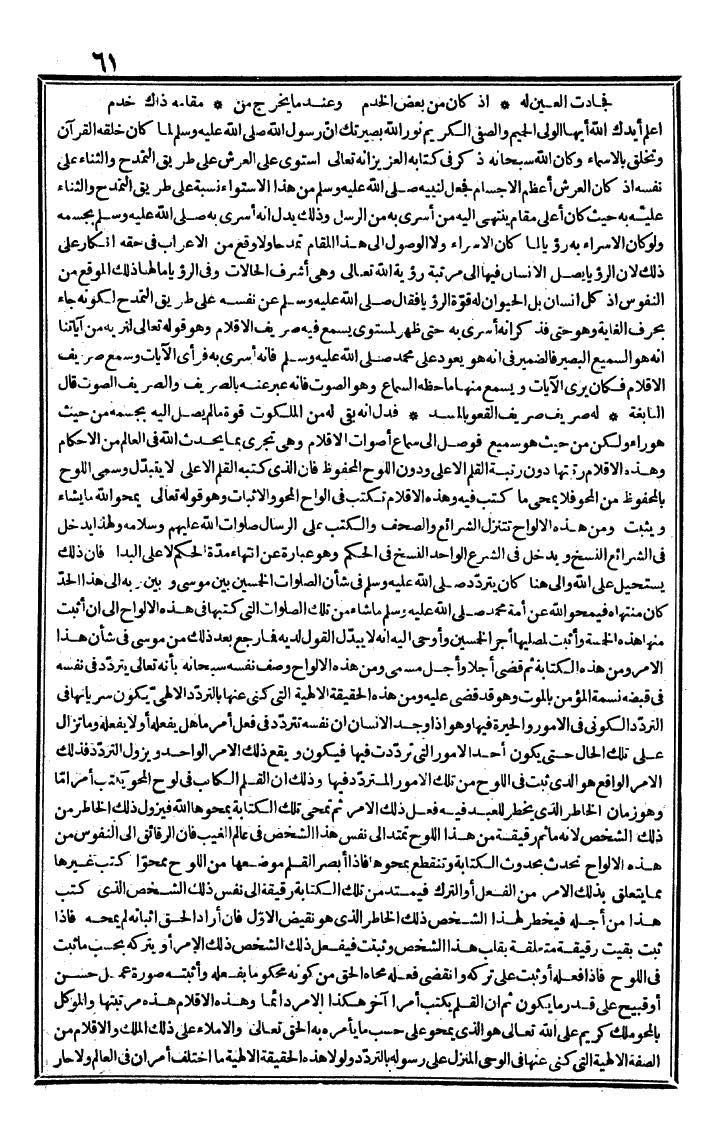 ٦١
فجادت العين له * اذ كان من بعض الخدم وعندما يخرج من * مقامه ذاك خدم
اعلم أيدك الله أيها الولى الحميم والصفى الكريم نور الله بصيرتك ان رسول الله صلى الله عليه وسلم لما كان خلقه القرآن
وتخلق بالاسماء وكان الله سبحانه ذكر فى كتابه العزيز انه تعالى استوى على العرش على طريق التمدح والثناء على
نفسه اذ كان العرش أعظم الاجسام فجعل لنبيه صلى الله عليه وسلم من هذا الاستواء نسبة على طريق التمدح والثناء
عليه به حيث كان أعلى مقام ينتهى اليه من أسرى به من الرسل وذلك يدل انه أسرى به صلى الله عليه وسلم بجسمه
ولو كان الاسراء به رؤيا لما كان الاسراء ولا الوصول الى هذا المقام تمدحا ولا وقع من الاعراب فى حقه انكار على
ذلك لان الرؤيا يصل الانسان فيها الى مرتبة رؤية الله تعالى وهى أشرف الحالات وفى الرؤيا ما لها ذلك الموقع من
النفوس اذ كل انسان بل الحيوان له قوة الرؤيا فقال صلى الله عليه وسلم عن نفسه على طريق التمدح لكونه جاء
بحرف الغاية وهو حتى فذكر انه أسرى به حتى ظهر لمستوى يسمع فيه صريف الاقلام وهو قوله تعالى لنريه من آياتنا
انه هو السميع البصير فالضمير فى انه هو يعود على محمد صلى الله عليه وسلم فانه أسرى به فرأى الآيات وسمع صريف
الاقلام فكان يرى الآيات ويسمع منها ما حظه السماع وهو الصوت فانه عبر عنه بالصريف والصريف الصوت قال
النابغة * له صريف صريف القعو بالمسد * فدل انه بقى له من الملكوت قوة ما لم يصل اليه بجسمه من حيث
هو راء ولكن من حيث هو سميع فوصل الى سماع أصوات الاقلام وهى تجرى بما يحدث الله فى العالم من الاحكام
وهذه الاقلام رتبتها دون رتبة القلم الاعلى ودون اللوح المحفوظ فان الذى كتبه القلم الاعلى لا يتبدل وسمى اللوح
بالمحفوظ من المحو فلا يمحى ما كتب فيه وهذه الاقلام تكتب فى الواح المحو والاثبات وهو قوله تعالى يمحو الله ما يشاء
ويثبت ومن هذه الالواح تتنزل الشرائع والصحف والكتب على الرسال صلوات الله عليهم وسلامه ولهذا يدخل
فى الشرائع النسخ ويدخل فى الشرع الواحد النسخ فى الحكم وهو عبارة عن انتهاء مدة الحكم لا على البدا فان ذلك
يستحيل على الله والى هنا كان يتردد صلى الله عليه وسلم فى شأن الصلوات الخمسين بين موسى وبين ربه الى هذا الحد
كان منتهاه فيمحو الله عن أمة محمد صلى الله عليه وسلم ما شاء من تلك الصلوات التى كتبها فى هذه الالواح الى ان أثبت
منها هذه الخمسة وأثبت لمصليها أجر الخمسين وأوحى اليه انه لا يبدل القول لديه فما رجع بعد ذلك من موسى فى شأن هذا
الامر ومن هذه الكتابة ثم قضى أجلا وأجل مسمى ومن هذه الالواح وصف نفسه سبحانه بأنه تعالى يتردد فى نفسه
فى قبضه نسمة المؤمن بالموت وهو قد قضى عليه ومن هذه الحقيقة الالهية التى كنى عنها بالتردد الالهى يكون سريانها فى
التردد الكونى فى الامور والحيرة فيها وهو اذا وجد الانسان ان نفسه تتردد فى فعل أمر ما هل يفعله أو لا يفعله وما تزال
على تلك الحال حتى يكون أحد الامور التى ترددت فيها فيكون ويقع ذلك الامر الواحد ويزول التردد فذلك
الامر الواقع هو الذى ثبت فى اللوح من تلك الامور المتردد فيها وذلك ان القلم الكاتب فى لوح المحو يكتب أمرا ما
وهو زمان الخاطر الذى يخطر للعبد فيه فعل ذلك الامر ثم تمحى تلك الكتابة يمحوها الله فيزول ذلك الخاطر من
ذلك الشخص لانه ما ثم رقيقة من هذا اللوح تمتد الى نفس هذا الشخص فى عالم الغيب فان الرقائق الى النفوس من
هذه الالواح تحدث بحدوث الكتابة وتنقطع بمحوها فاذا أبصر القلم موضعها من اللوح ممحوا كتب غيرها
مما يتعلق بذلك الامر من الفعل أو الترك فيمتد من تلك الكتابة رقيقة الى نفس ذلك الشخص الذى كتب
هذا من أجله فيخطر لهذا الشخص ذلك الخاطر الذى هو نقيض الاول فان أراد الحق اثباته لم يمحه فاذا
ثبت بقيت رقيقة متعلقة بقلب هذا الشخص وثبتت فيفعل ذلك الشخص ذلك الامر أو يتركه بحسب ما ثبت
فى اللوح فاذا فعله أو ثبت على تركه وانقضى فعله محاه الحق من كونه محكوما بفعله وأثبته صورة عمل حسن
أو قبيح على قدر ما يكون ثم ان القلم يكتب أمرا آخر هكذا الامر دائما وهذه الاقلام هذه مرتبتها والموكل
بالمحو ملك كريم على الله تعالى هو الذى يمحو على حسب ما يأمره به الحق تعالى والاملاء على ذلك الملك والاقلام من
الصفة الالهية التى كنى عنها فى الوحى المنزل على رسوله بالتردد ولولا هذه الحقيقة الالهية ما اختلف أمران فى العالم ولا حار